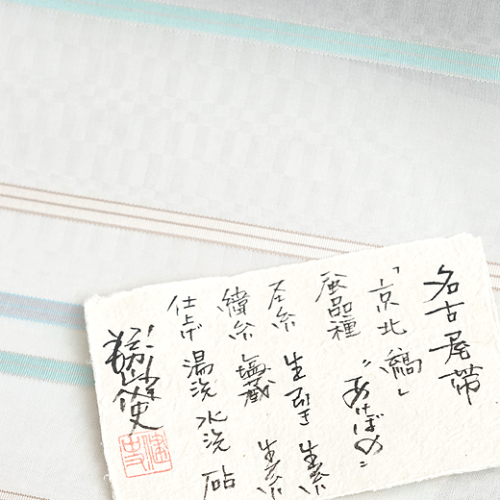 名古屋帯
「京北縞」
蚕品種 "あけぼの"
经糸 生引き 生糸
緯糸 塩蔵 生糸
仕上げ 湯洗 水洗 砧